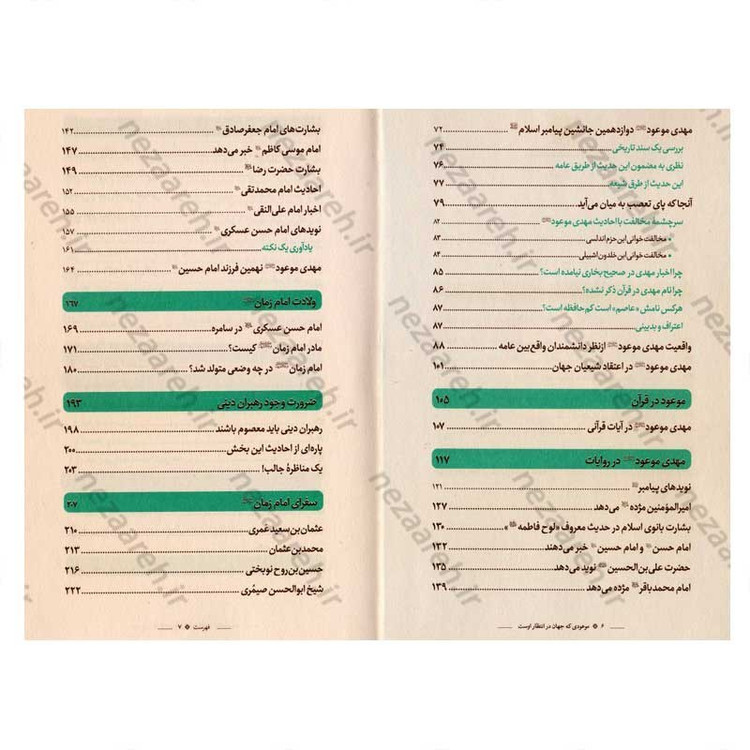 مهدی موعود دوازدهمین جانشین پیامبر اسلام ۷۲
بررسی یک سند تاریخی ۷۴
نظری به مضمون این حدیث از طریق عامه ۷۶
این حدیث از طرق شیعه ۷۷
آنجا که پای تعصب به میان می‌آید ۷۹
سرچشمهٔ مخالفت با احادیث مهدی موعود ۸۲
• مخالفت خوانی ابن حزم اندلسی ۸۳
• مخالفت خوانی ابن خلدون اشبیلی ۸۴
چرا اخبار مهدی در صحیح بخاری نیامده است؟ ۸۵
چرا نام مهدی در قرآن ذکر نشده؟ ۸۶
هرکس نامش «عاصم» است کم حافظه است؟ ۸۷
اعتراف و بدبینی ۸۷
واقعیت مهدی موعود ازنظر دانشمندان واقع‌بین عامه ۸۸
مهدی موعود در اعتقاد شیعیان جهان ۱۰۱
موعود در قرآن ۱۰۵
مهدی موعود در آیات قرآنی ۱۰۷
مهدی موعود در روایات ۱۱۷
نویدهای پیامبر ۱۲۱
امیرالمؤمنین مژده می‌دهد ۱۲۷
بشارت بانوی اسلام در حدیث معروف «لوح فاطمه» ۱۳۰
امام حسن و امام حسین خبر می‌دهند ۱۳۲
حضرت علی‌بن‌الحسین نوید می‌دهد ۱۳۵
امام محمدباقر مژده می‌دهد ۱۳۹
۶ موعودی که جهان در انتظار اوست
بشارت‌های امام جعفرصادق ۱۴۲
امام موسی کاظم خبر می‌دهد ۱۴۷
بشارت حضرت رضا ۱۴۹
احادیث امام محمدتقی ۱۵۲
اخبار امام علی‌النقی ۱۵۵
نویدهای امام حسن عسکری ۱۵۷
یادآوری یک نکته ۱۶۱
مهدی موعود نهمین فرزند امام حسین ۱۶۴
ولادت امام زمان ۱۶۷
امام حسن عسکری در سامره ۱۶۹
مادر امام زمان کیست؟ ۱۷۱
امام زمان در چه وضعی متولد شد؟ ۱۸۰
ضرورت وجود رهبران دینی ۱۹۳
رهبران دینی باید معصوم باشند ۱۹۸
پاره‌ای از احادیث این بخش ۲۰۰
یک مناظرهٔ جالب! ۲۰۳
سفرای امام زمان ۲۰۷
عثمان‌بن‌سعید عَمری ۲۱۰
محمدبن‌عثمان ۲۱۳
حسین‌بن‌روح نوبختی ۲۱۶
شیخ ابوالحسن صیمُری ۲۲۲
فهرست ۷
nezaareh.ir